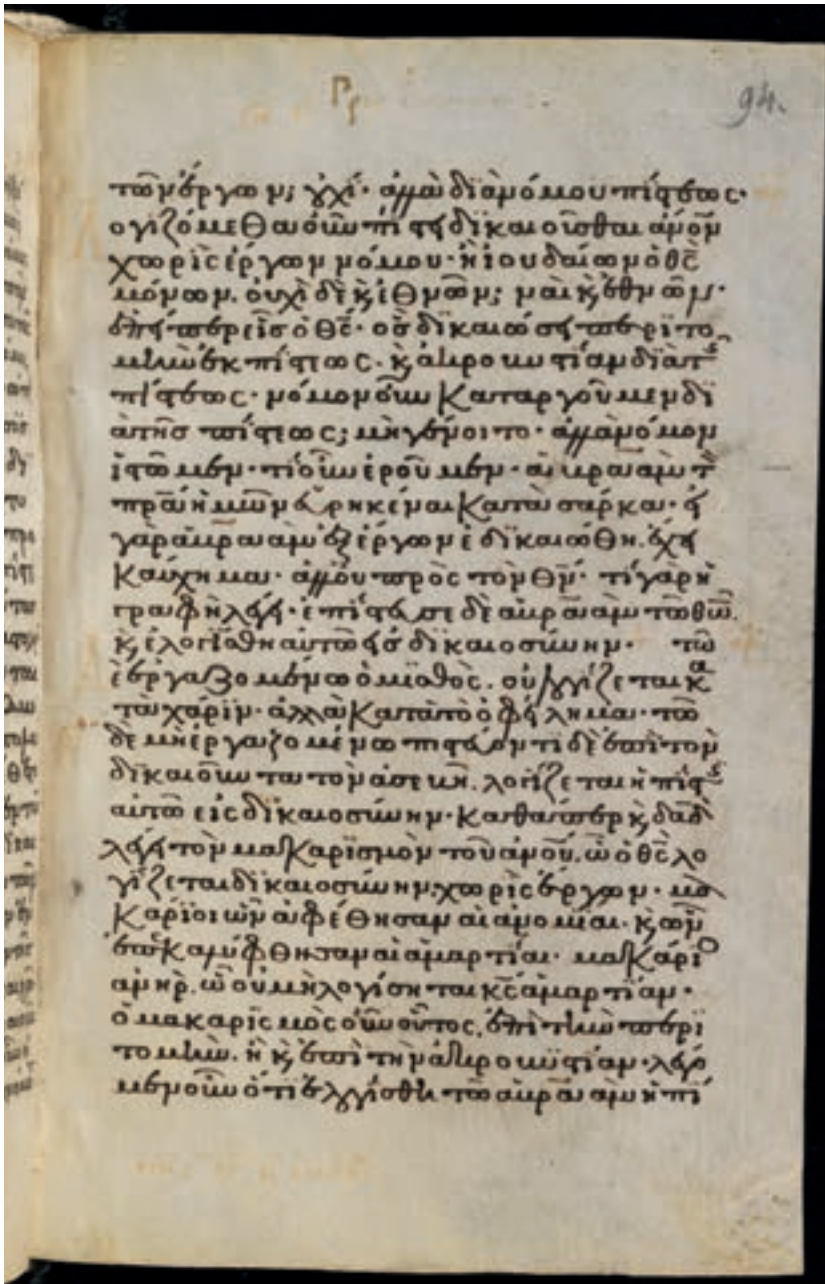 94.
τῶν ἔργων; οὐχί· ἀλλὰ διὰ νόμου πίστεως·
ογιζόμεθα οὖν πίστει δικαιοῦσθαι ἄνον
χωρὶς ἔργων νόμου· ἢ ἰουδαίων ὁ θς
μόνων. οὐχὶ δὲ καὶ ἐθνῶν; ναὶ καὶ ἐθνῶν·
ἐπείπερ εἷς ὁ θς· ὃς δικαιώσει περιτο
μὴν ἐκ πίστεως· καὶ ἀκροβυστίαν διὰ τῆς
πίστεως· νόμον οὖν καταργοῦμεν δι
ὰ τῆς πίστεως; μὴ γένοιτο· ἀλλὰ νόμον
ἱστῶμεν· τί οὖν ἐροῦμεν· ἀβραὰμ τὸν
πρα ἡμῶν εὑρηκέναι κατὰ σάρκα· εἰ
γὰρ ἀβραὰμ ἐξ ἔργων ἐδικαιώθη. ἔχει
καύχημα· ἀλλ' οὐ πρὸς τὸν θν· τί γὰρ ἡ
γραφὴ λέγει· ἐπίστευσε δὲ ἀβραὰμ τῶ θω.
καὶ ἐλογίσθη αὐτῶ εἰς δικαιοσύνην· τῶ
ἐργαζομένω ὁ μισθὸς. οὐ λογίζεται κα
τὰ χάριν· ἀλλὰ κατὰ τὸ ὀφείλημα· τῶ
δὲ μὴ ἐργαζομένω πιστεύοντι δὲ ἐπὶ τὸν
δικαιοῦντα τὸν ἀσεβῆ. λογίζεται ἡ πίστις
αὐτῶ εἰς δικαιοσύνην· καθάπερ καὶ δαδ
λέγει τὸν μακαρισμὸν τοῦ ἀνου. ὧ ὁ θς λο
γίζεται δικαιοσύνην· χωρὶς ἔργων· μα
κάριοι ὧν ἀφέθησαν αἱ ἀνομίαι· καὶ ὧν
ἐπεκαλύφθησαν αἱ ἁμαρτίαι· μακάριο
ἀνὴρ. ὧ οὐ μὴ λογίσηται κς ἁμαρτίαν·
ὁ μακαρισμὸς οὖν οὗτος. ἐπὶ τὴν περι
τομὴν. ἢ καὶ ἐπὶ τὴν ἀκροβυστίαν· λέγο
μεν οὖν ὅτι ἐλογίσθη τῶ ἀβραὰμ ἡ πί